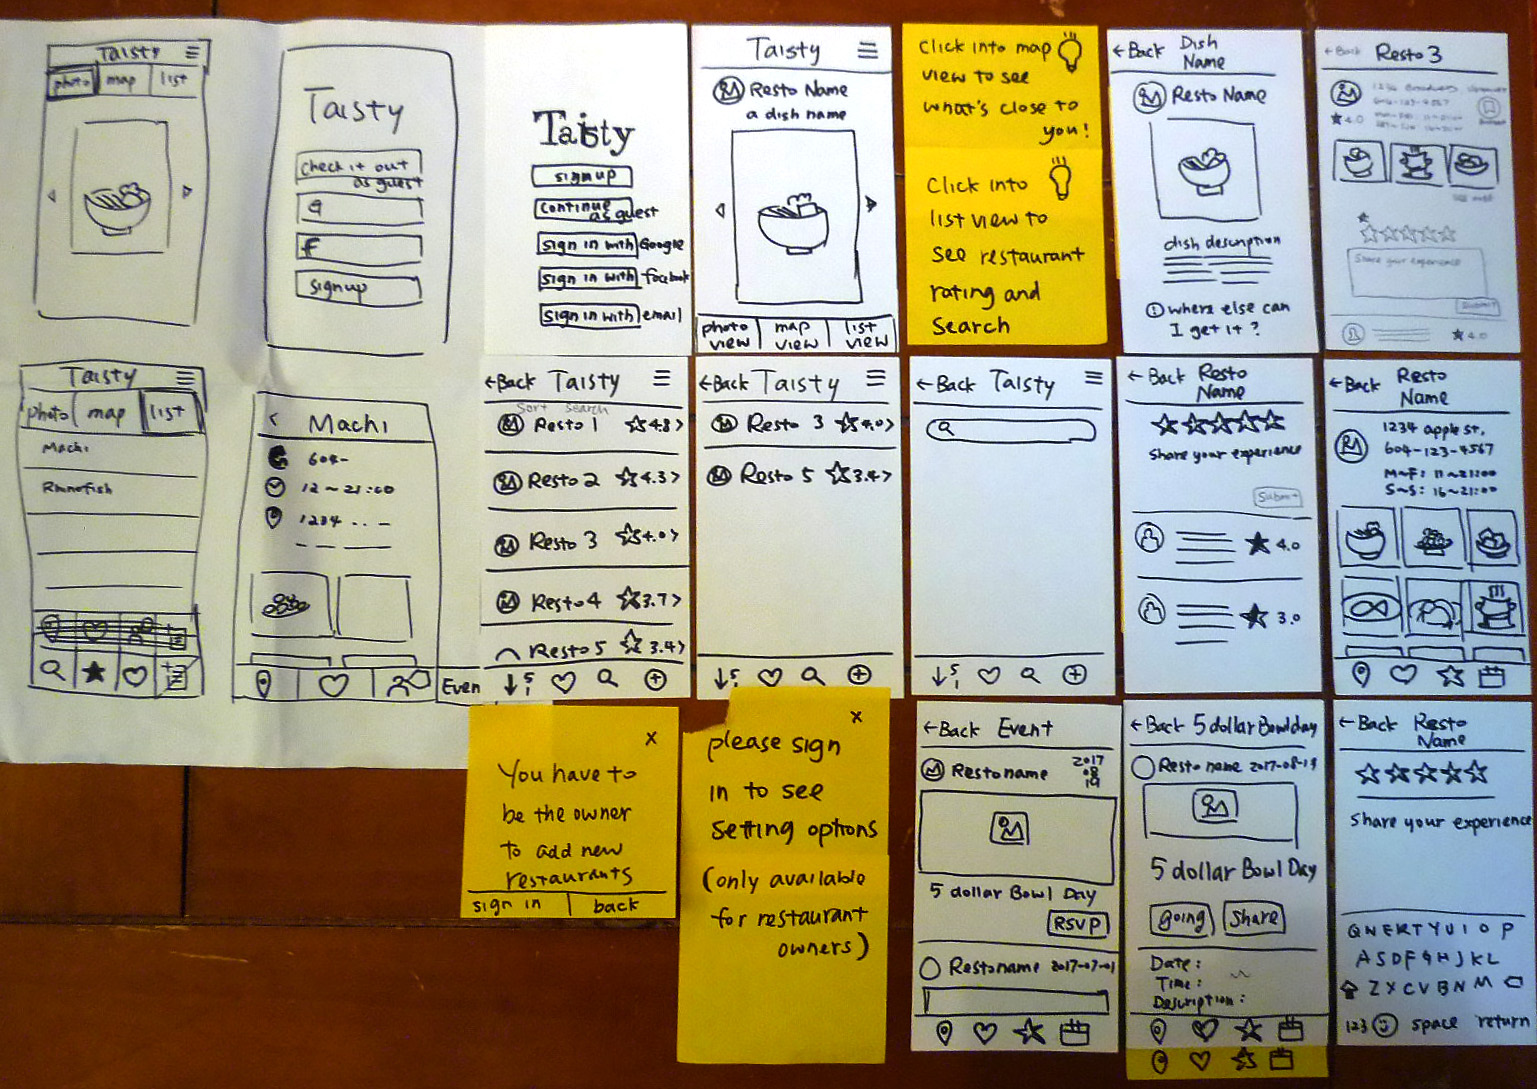 Taisty
photo
map
list
Taisty
check it out
as guest
G
f
signup
Taisty
sign up
continue
as guest
sign in with Google
sign in with facebook
sign in with email
Taisty
Resto Name
a dish name
photo view
map view
list view
Click into map
view to see
what's close to
you!
Click into
list view to
see restaurant
rating and
search
←Back Dish
Name
Resto Name
dish description
where else can
I get it?
←Back Resto 3
604-123-4567
4.0
see more
Share your experience
Submit
4.0
Taisty
photo
map
list
Machi
< Machi
604-
12~21:00
1234 .. -
Even
←Back Taisty
Sort Search
Resto 1 4.3>
Resto 2 4.3>
Resto 3 4.0>
Resto 4 3.7>
Resto 5 3.4>
←Back Taisty
Resto 3 4.0>
Resto 5 3.4>
←Back Taisty
←Back Resto
Name
share your experience
Submit
4.0
3.0
←Back Resto
Name
1234 apple st.
604-123-4567
M~F: 11~21:00
S~S: 16~21:00
x
You have to
be the owner
to add new
restaurants
sign in
back
x
please sign
in to see
setting options
(only available
for restaurant
owners)
←Back Event
Resto name 2017
08
19
5 dollar Bowl Day
RSVP
Resto name 2017-07-01
←Back 5 dollar Bowl day
Resto name 2017-08-19
5 dollar Bowl Day
going
share
Date:
Time:
Description:
←Back Resto
Name
share your experience
Q W E R T Y U I O P
A S D F G H J K L
Z X C V B N M
123 space return